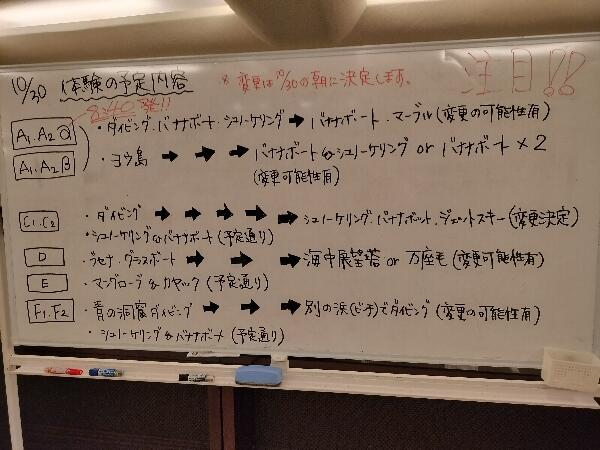 10/30 体験の予定内容
※変更は10/30の朝に決定します。
注目!!
8:40発!!
A1.A2α
・ダイビング.バナナボート.シュノーケリング → バナナボート.マーブル(変更の可能性有)
A1.A2β
・ヨウ島 → → → バナナボート&シュノーケリング or バナナボート×2
(変更可能性有)
C1.C2
・ダイビング → → → → → シュノーケリング.バナナボット.ジェットスキー(変更決定)
・シュノーケリング&バナナボート(予定通り)
D
・ブセナ.グラスボート → → → 海中展望塔 or 万座毛(変更可能性有)
E
・マングローブ&カヤック(予定通り)
F1.F2
・青の洞窟ダイビング → → → 別の浜(ビーチ)でダイビング(変更の可能性有)
・シュノーケリング&バナナボート(予定通り)